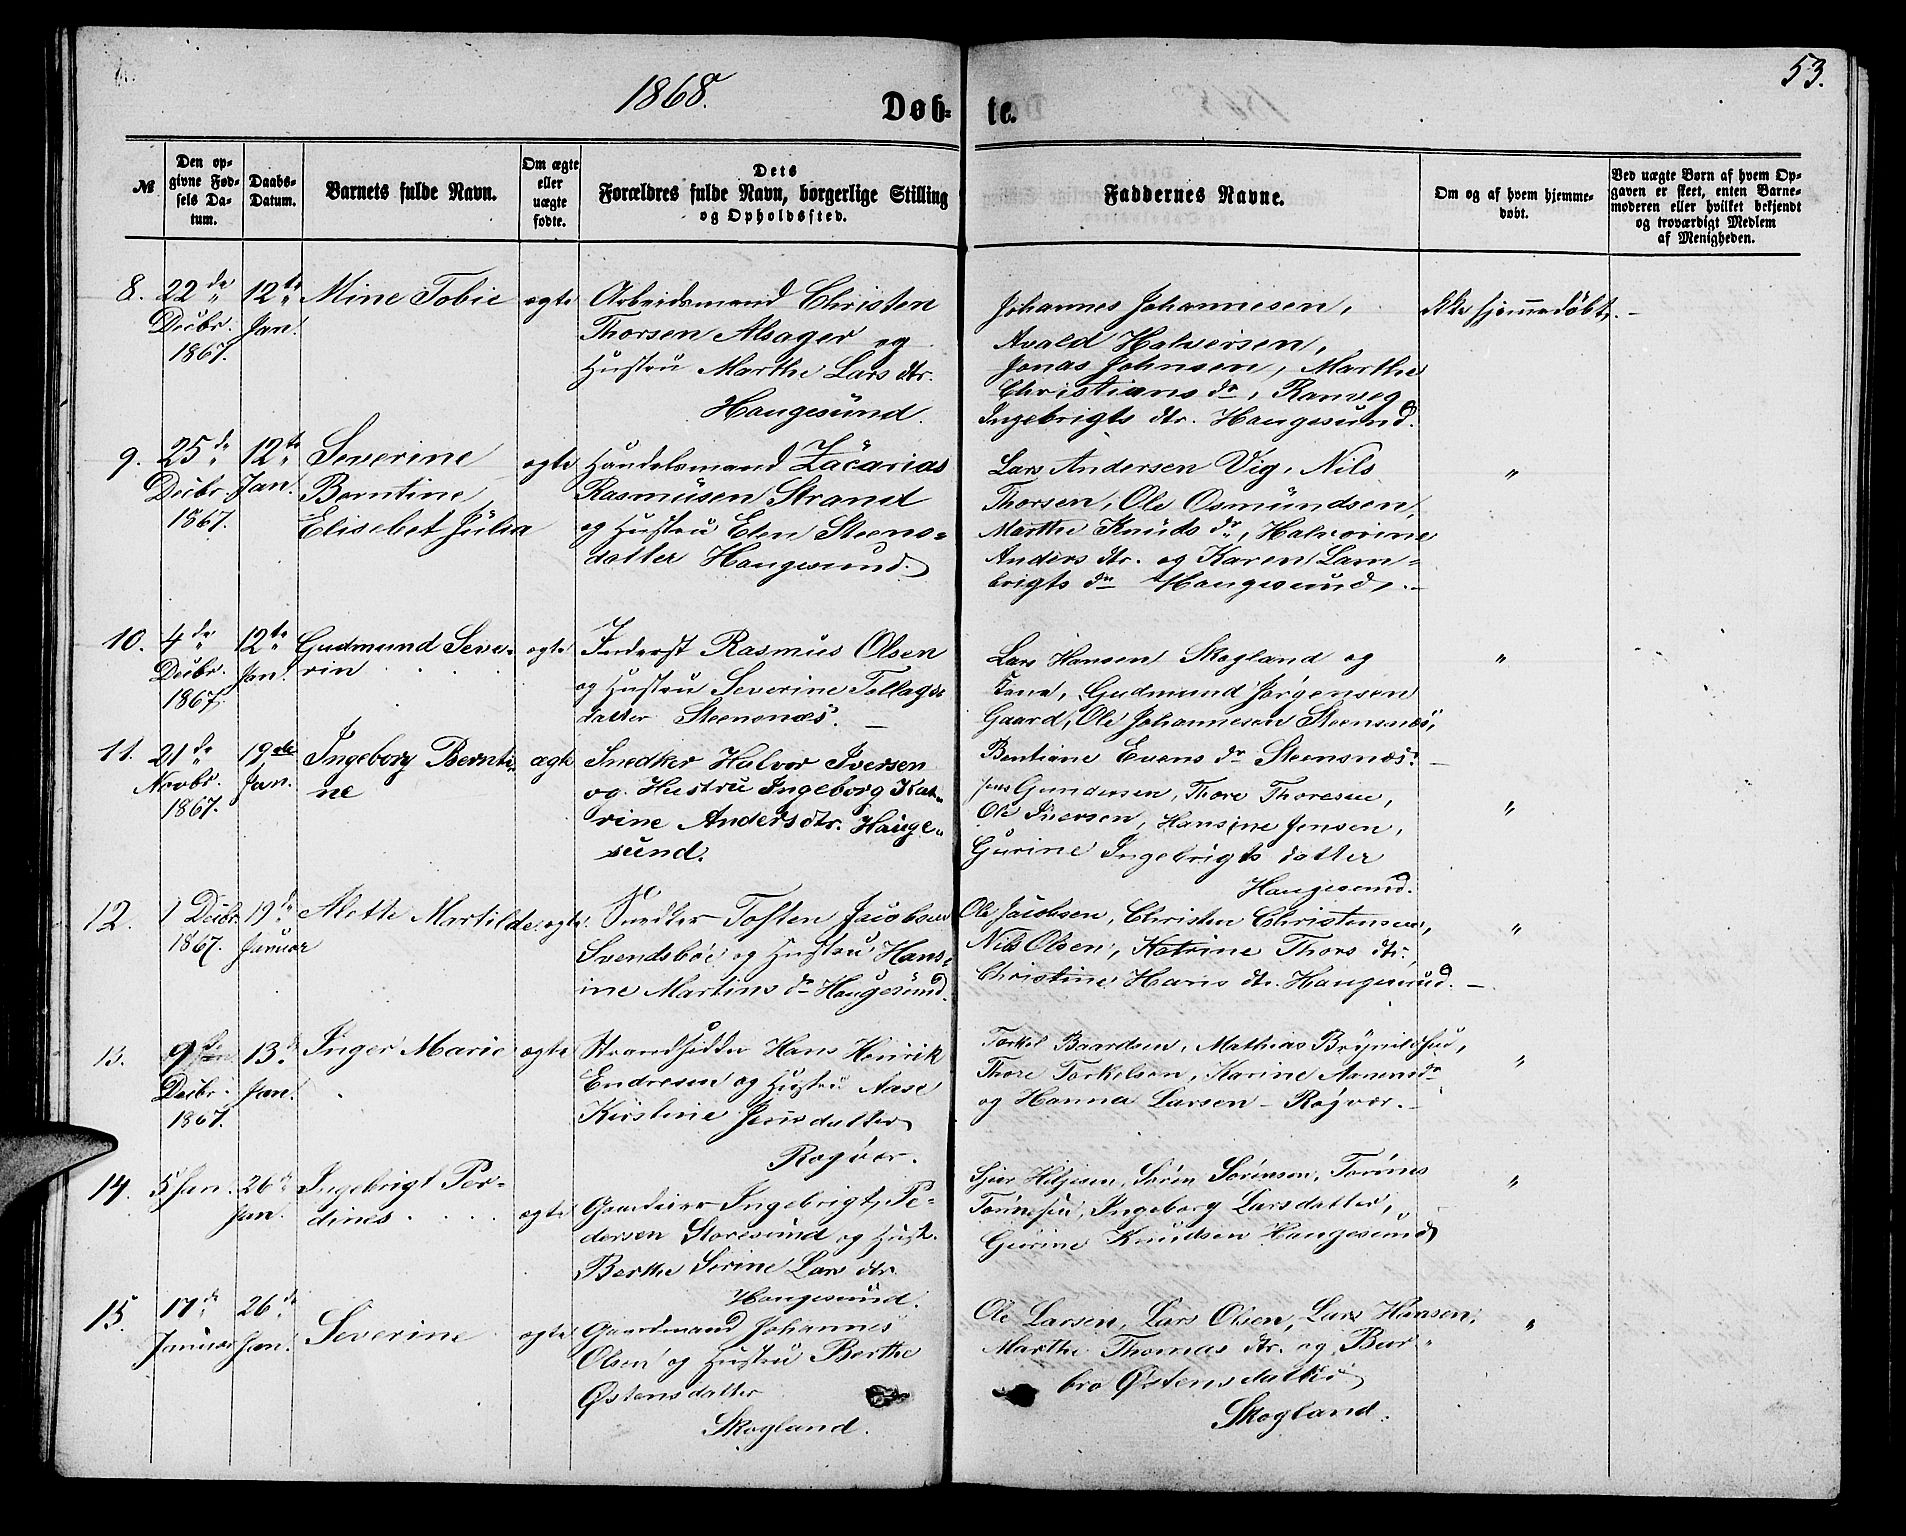 1868.
53.
Døb- te.
№
Den op-
givne Fød-
sels Da-
tum.
Daabs-
Datum.
Barnets fulde Navn.
Om ægte
eller
uægte
fødte.
Dets
Forældres fulde Navn, borgerlige Stilling
og Opholdssted.
Faddernes Navne.
Om og af hvem hjemme-
døbt.
Ved uægte Børn af hvem Op-
gaven er skeet, enten Barne-
moderen eller hvilket bekjendt
og troværdigt Medlem
af Menigheden.
8.
22de
Decbr.
1867.
12te
Jan.
Mine Tobie
ægte
Arbeidsmand Christen
Thorsen Alsager og
Hustru Marthe Lars dtr.
Haugesund.
Johannes Johannesen,
Avald Halvorsen,
Jonas Johnsen, Marthe
Christians dr, Ranveg
Ingebrigts dtr. Haugesund.
ikke hjemmedøbt.
9.
25de
Decbr.
1867.
12te
Jan.
Severine
Berntine
Elisebet Julia
ægte
Handelsmand Zacarias
Rasmusen Strand
og Hustru Elen Steens=
datter Haugesund.
Lars Andersen Vig, Nils
Thorsen, Ole Osmundsen,
Marthe Knuds dr, Halvorine
Anders dtr. og Karen Lam=
brigts dr Haugesund.
"
10.
4de
Decbr.
1867.
12te
Jan.
Gudmund Seve-
rin
ægte
Inderst Rasmus Olsen
og Hustru Severine Tollags
datter Steensnæs.
Lars Hansen Skogland og
Kona, Gudmund Jørgensen
Gaard, Ole Johannesen Steensnæs,
Bentine Evens dr Steensnæs.
"
11.
21de
Novbr.
1867.
19de
Jan.
Ingeborg Bernti-
ne
ægte
Snedker Halvor Iversen
og Hustru Ingeborg Kat-
rine Andersdtr. Hauge-
sund.
Jens Gundersen, Thore Thoresen,
Ole Iversen, Hansine Jensen,
Gurine Ingebrigts datter
Haugesund.
"
12.
1 Decbr.
1867.
19de
Januar
Alette Martilde
ægte
Snedker Tosten Jacobsen
Svendsbøe og Hustru Hans-
ine Martins dr Haugesund.
Ole Jacobsen, Christen Christensen,
Nils Olsen, Katrine Thors dtr.,
Christine Hans dtr. Haugesund.
"
13.
9de
Decbr.
1867.
13de
Jan.
Inger Marie
ægte
Strandsidder Hans Henrik
Endresen og Hustru Aase
Kirstine Jensdatter
Røgvær.
Torkel Baardsen, Mathias Brynildsen,
Thore Torkelsen, Karine
og Hanna Larsen - Røgvær.
"
14.
5 Jan.
26de
Jan.
Ingebrigt Per-
dines
ægte
Gaardeier Ingebrigt Pe-
dersen Storesund og Hust.
Berthe Serine Lars dtr.
Haugesund.
Søren Sørensen, Tønnes
Tønnesen, Ingeborg Larsdatter,
Gurine Knudsen Haugesund
"
15.
17de
Januar
26de
Jan.
Severine
ægte
Gaardmand Johannes
Olsen og Hustru Berthe
Østensdatter
Skogland.
Ole Larsen, Lars Olsen, Lars Hansen,
Marthe Thomas dtr. og Bar-
bro Østensdatter
Skogland.
"